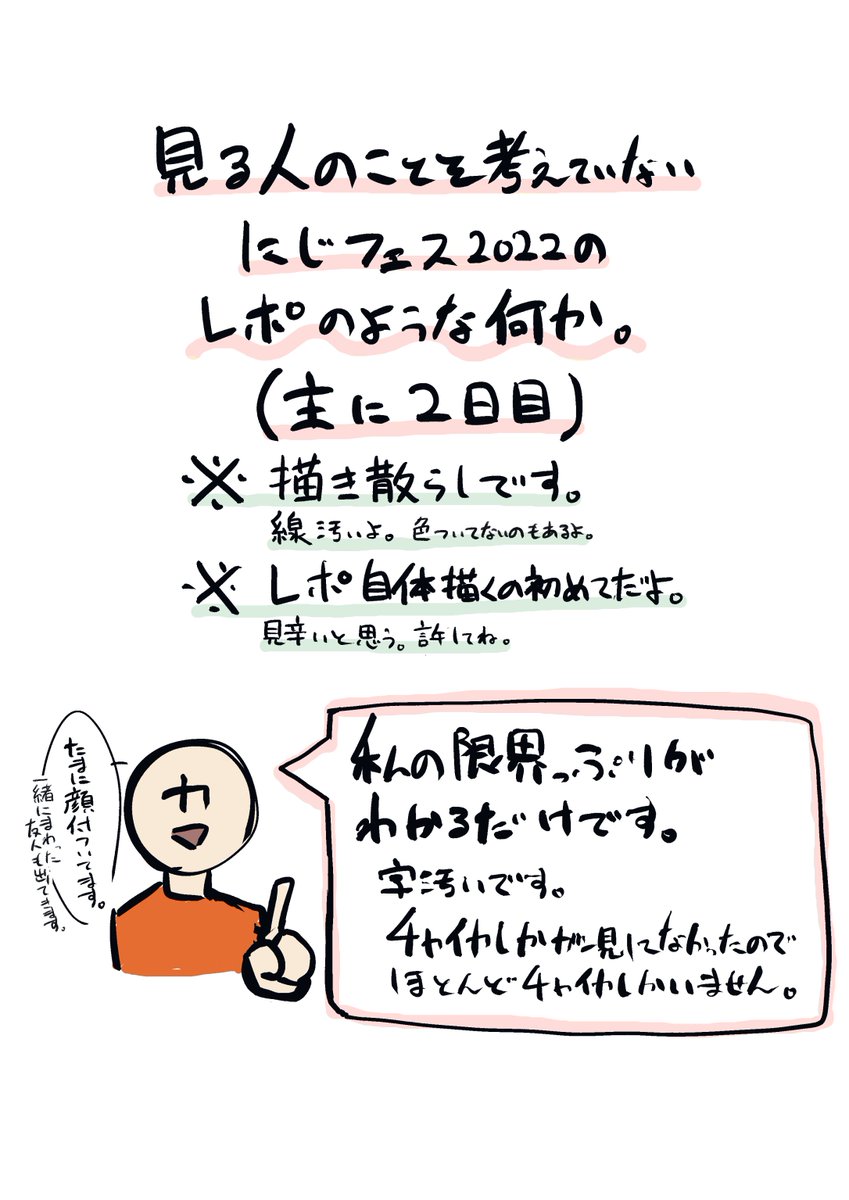 見る人のことを考えていない
にじフェス2022の
レポのような何か。
(主に2日目)
※ 描き散らしです。
線汚いよ。色ついてないのもあるよ。
※ レポ自体描くの初めてだよ。
見辛いと思う。許してね。
私の限界っぷりが
わかるだけです。
字汚いです。
チャイカしかガン見してなかったので
ほとんどチャイカしかいません。
カ
たまに顔付ついてます。
一緒にまわった
友人も出てきます。